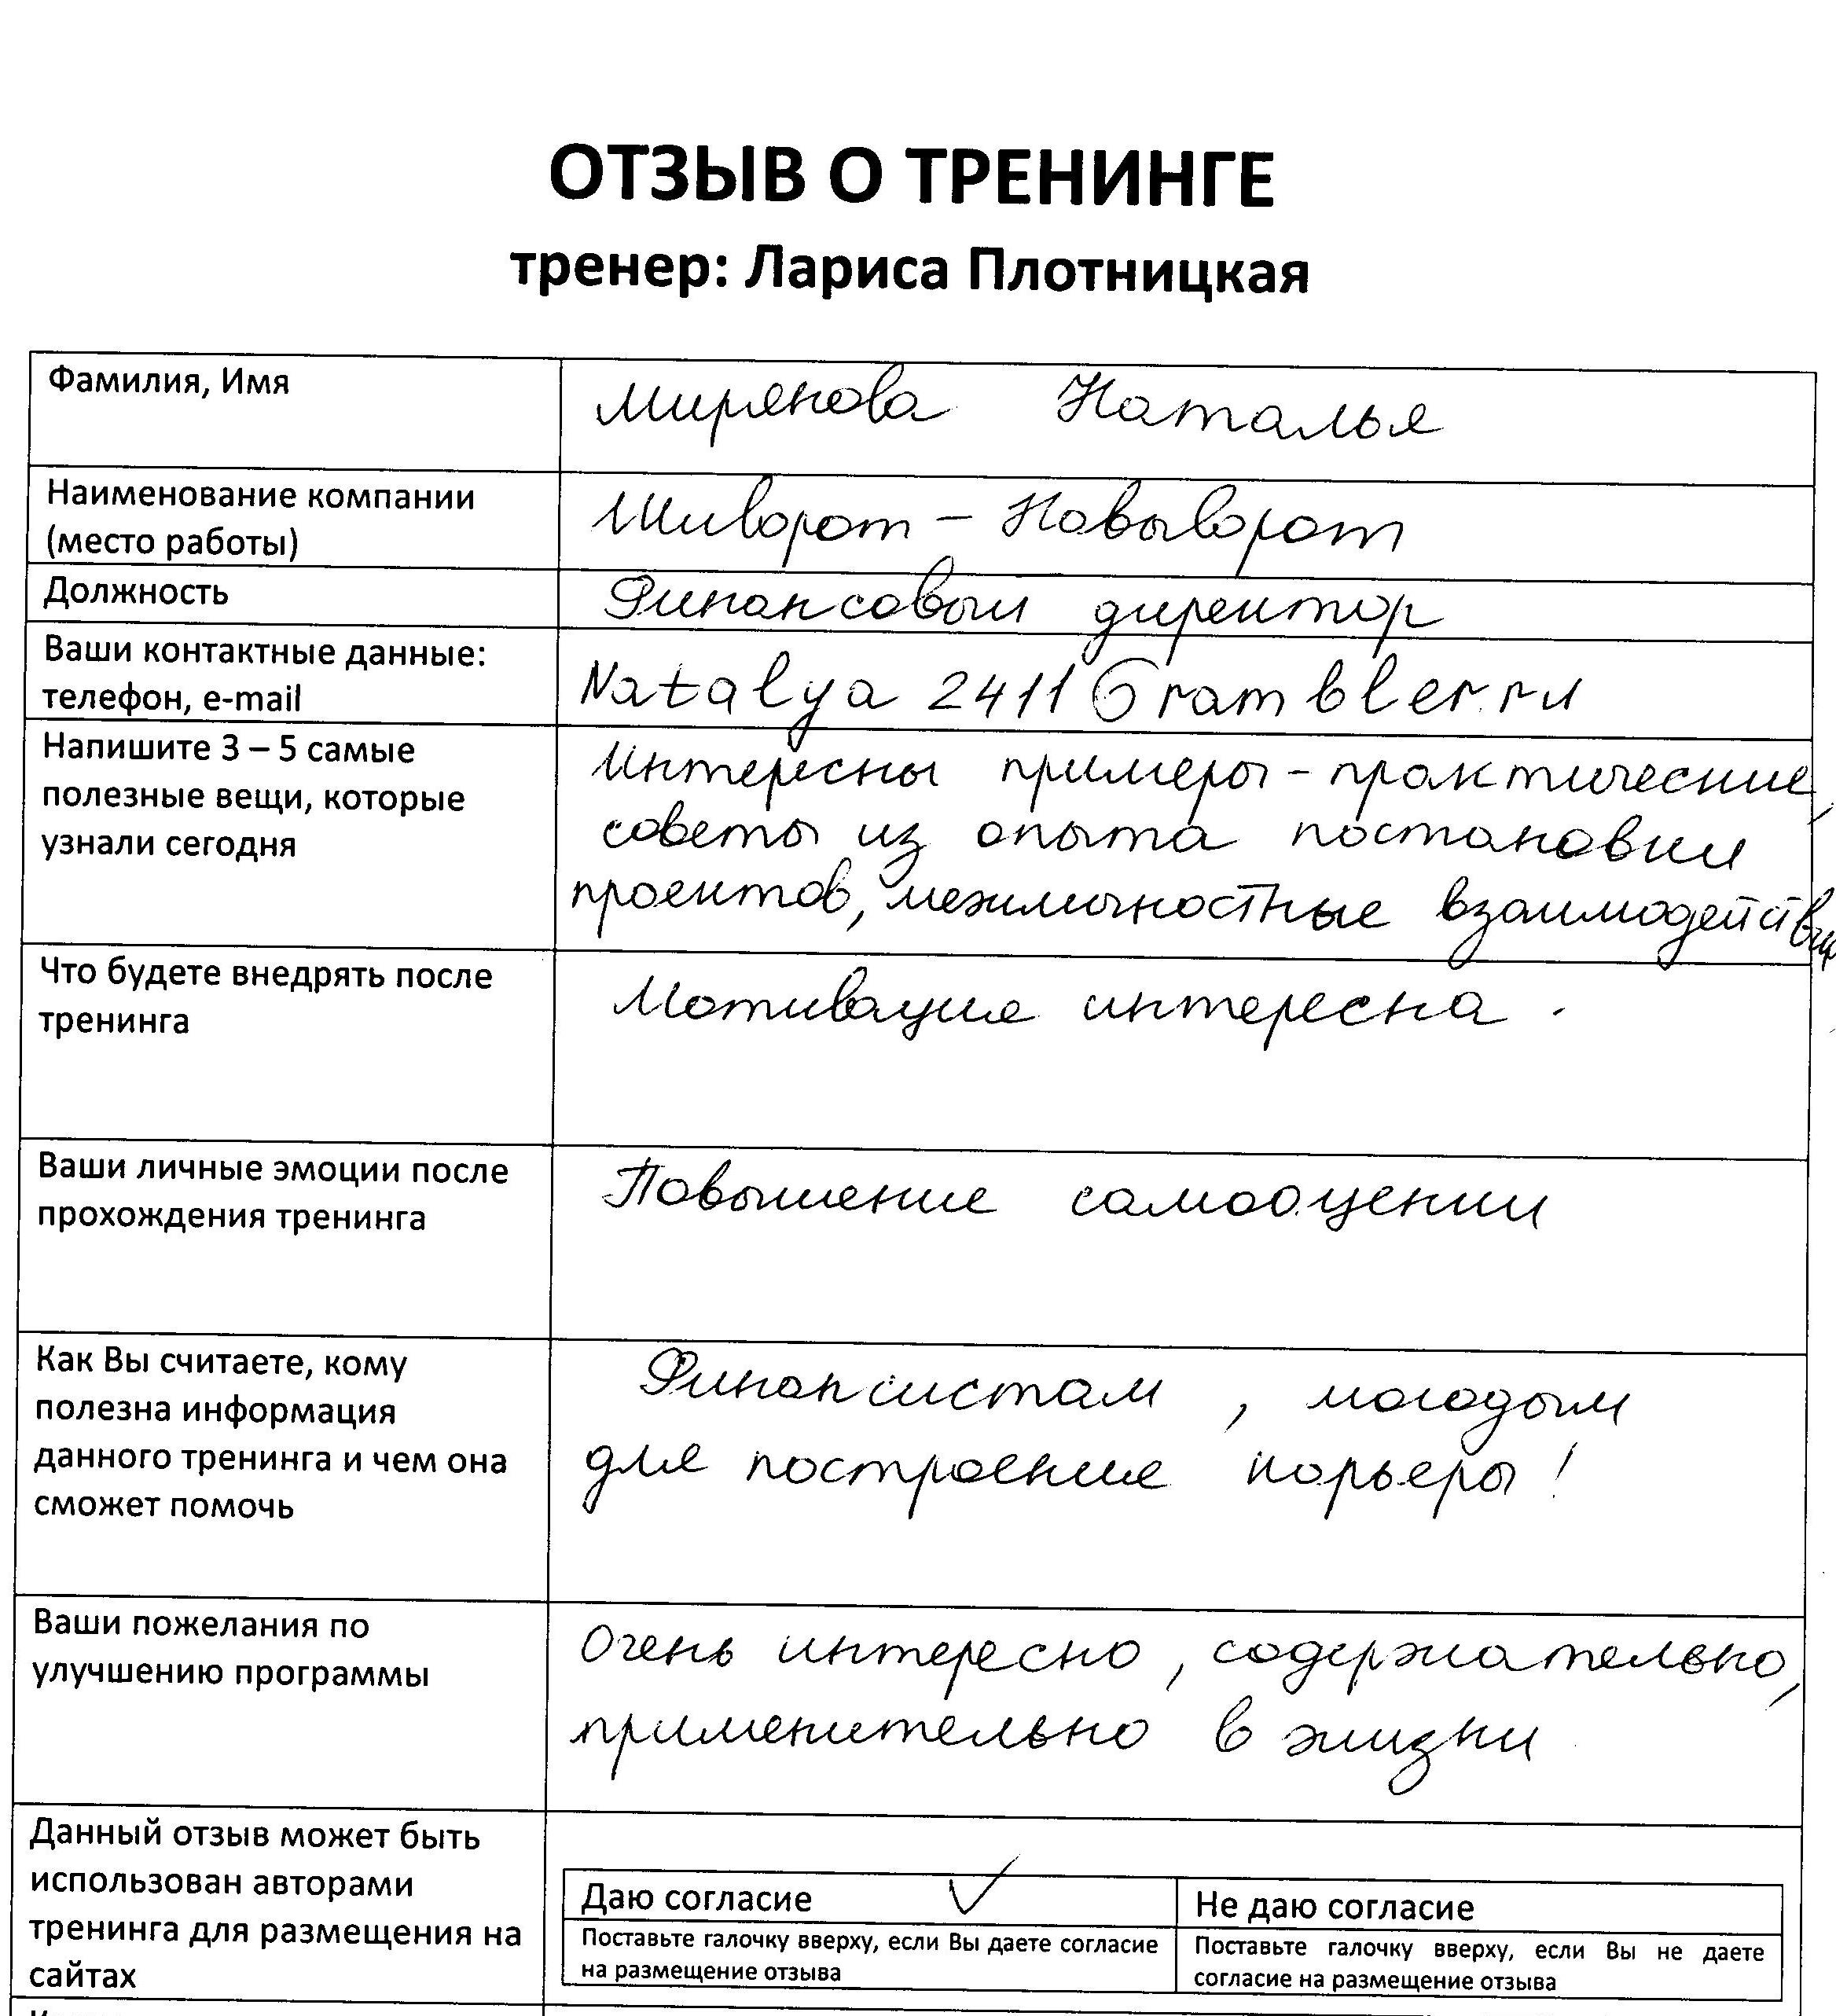 ОТЗЫВ О ТРЕНИНГЕ
тренер: Лариса Плотницкая
Фамилия, Имя
Мирянова Наталья
Наименование компании
(место работы)
Шиворот - Новыворот
Должность
Финансовый директор
Ваши контактные данные:
телефон, e-mail
Natalya2411@rambler.ru
Напишите 3 – 5 самые
полезные вещи, которые
узнали сегодня
Интересны примеры - практические,
советы из опыта постановки
проектов, межличностные взаимодействия
Что будете внедрять после
тренинга
Мотивация интересна.
Ваши личные эмоции после
прохождения тренинга
Повышение самооценки
Как Вы считаете, кому
полезна информация
данного тренинга и чем она
сможет помочь
Финансистам, молодым
для построения карьеры!
Ваши пожелания по
улучшению программы
Очень интересно, содержательно,
применительно в жизни
Данный отзыв может быть
использован авторами
тренинга для размещения на
сайтах
Даю согласие ✓
Поставьте галочку вверху, если Вы даете согласие
на размещение отзыва
Не даю согласие
Поставьте галочку вверху, если Вы не даете
согласие на размещение отзыва